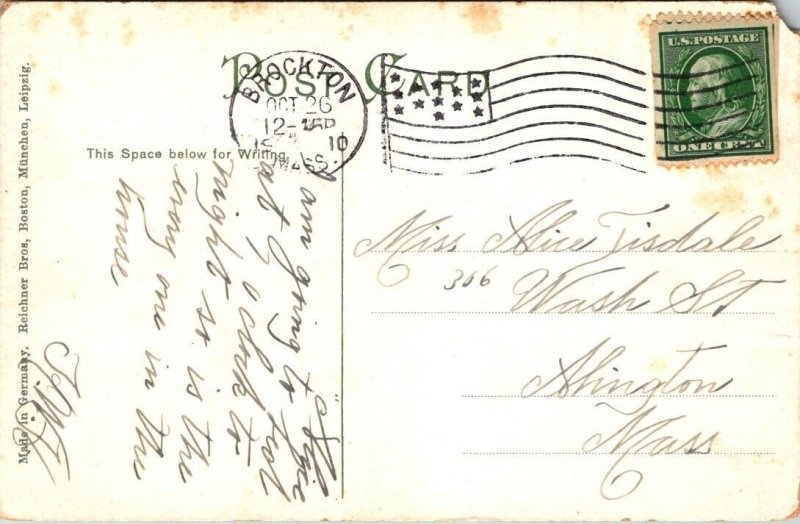 POST CARD
BROCKTON
OCT 26
12
10
MASS.
U.S. POSTAGE
ONE CENT
This Space below for Writing.
Made in Germany. Reichner Bros, Boston, München, Leipzig.
Miss Alice Tisdale
366
Wash St
Abington
Mass
Alice
I am going to
at 7 o clock to
night so is the
every one in the
house